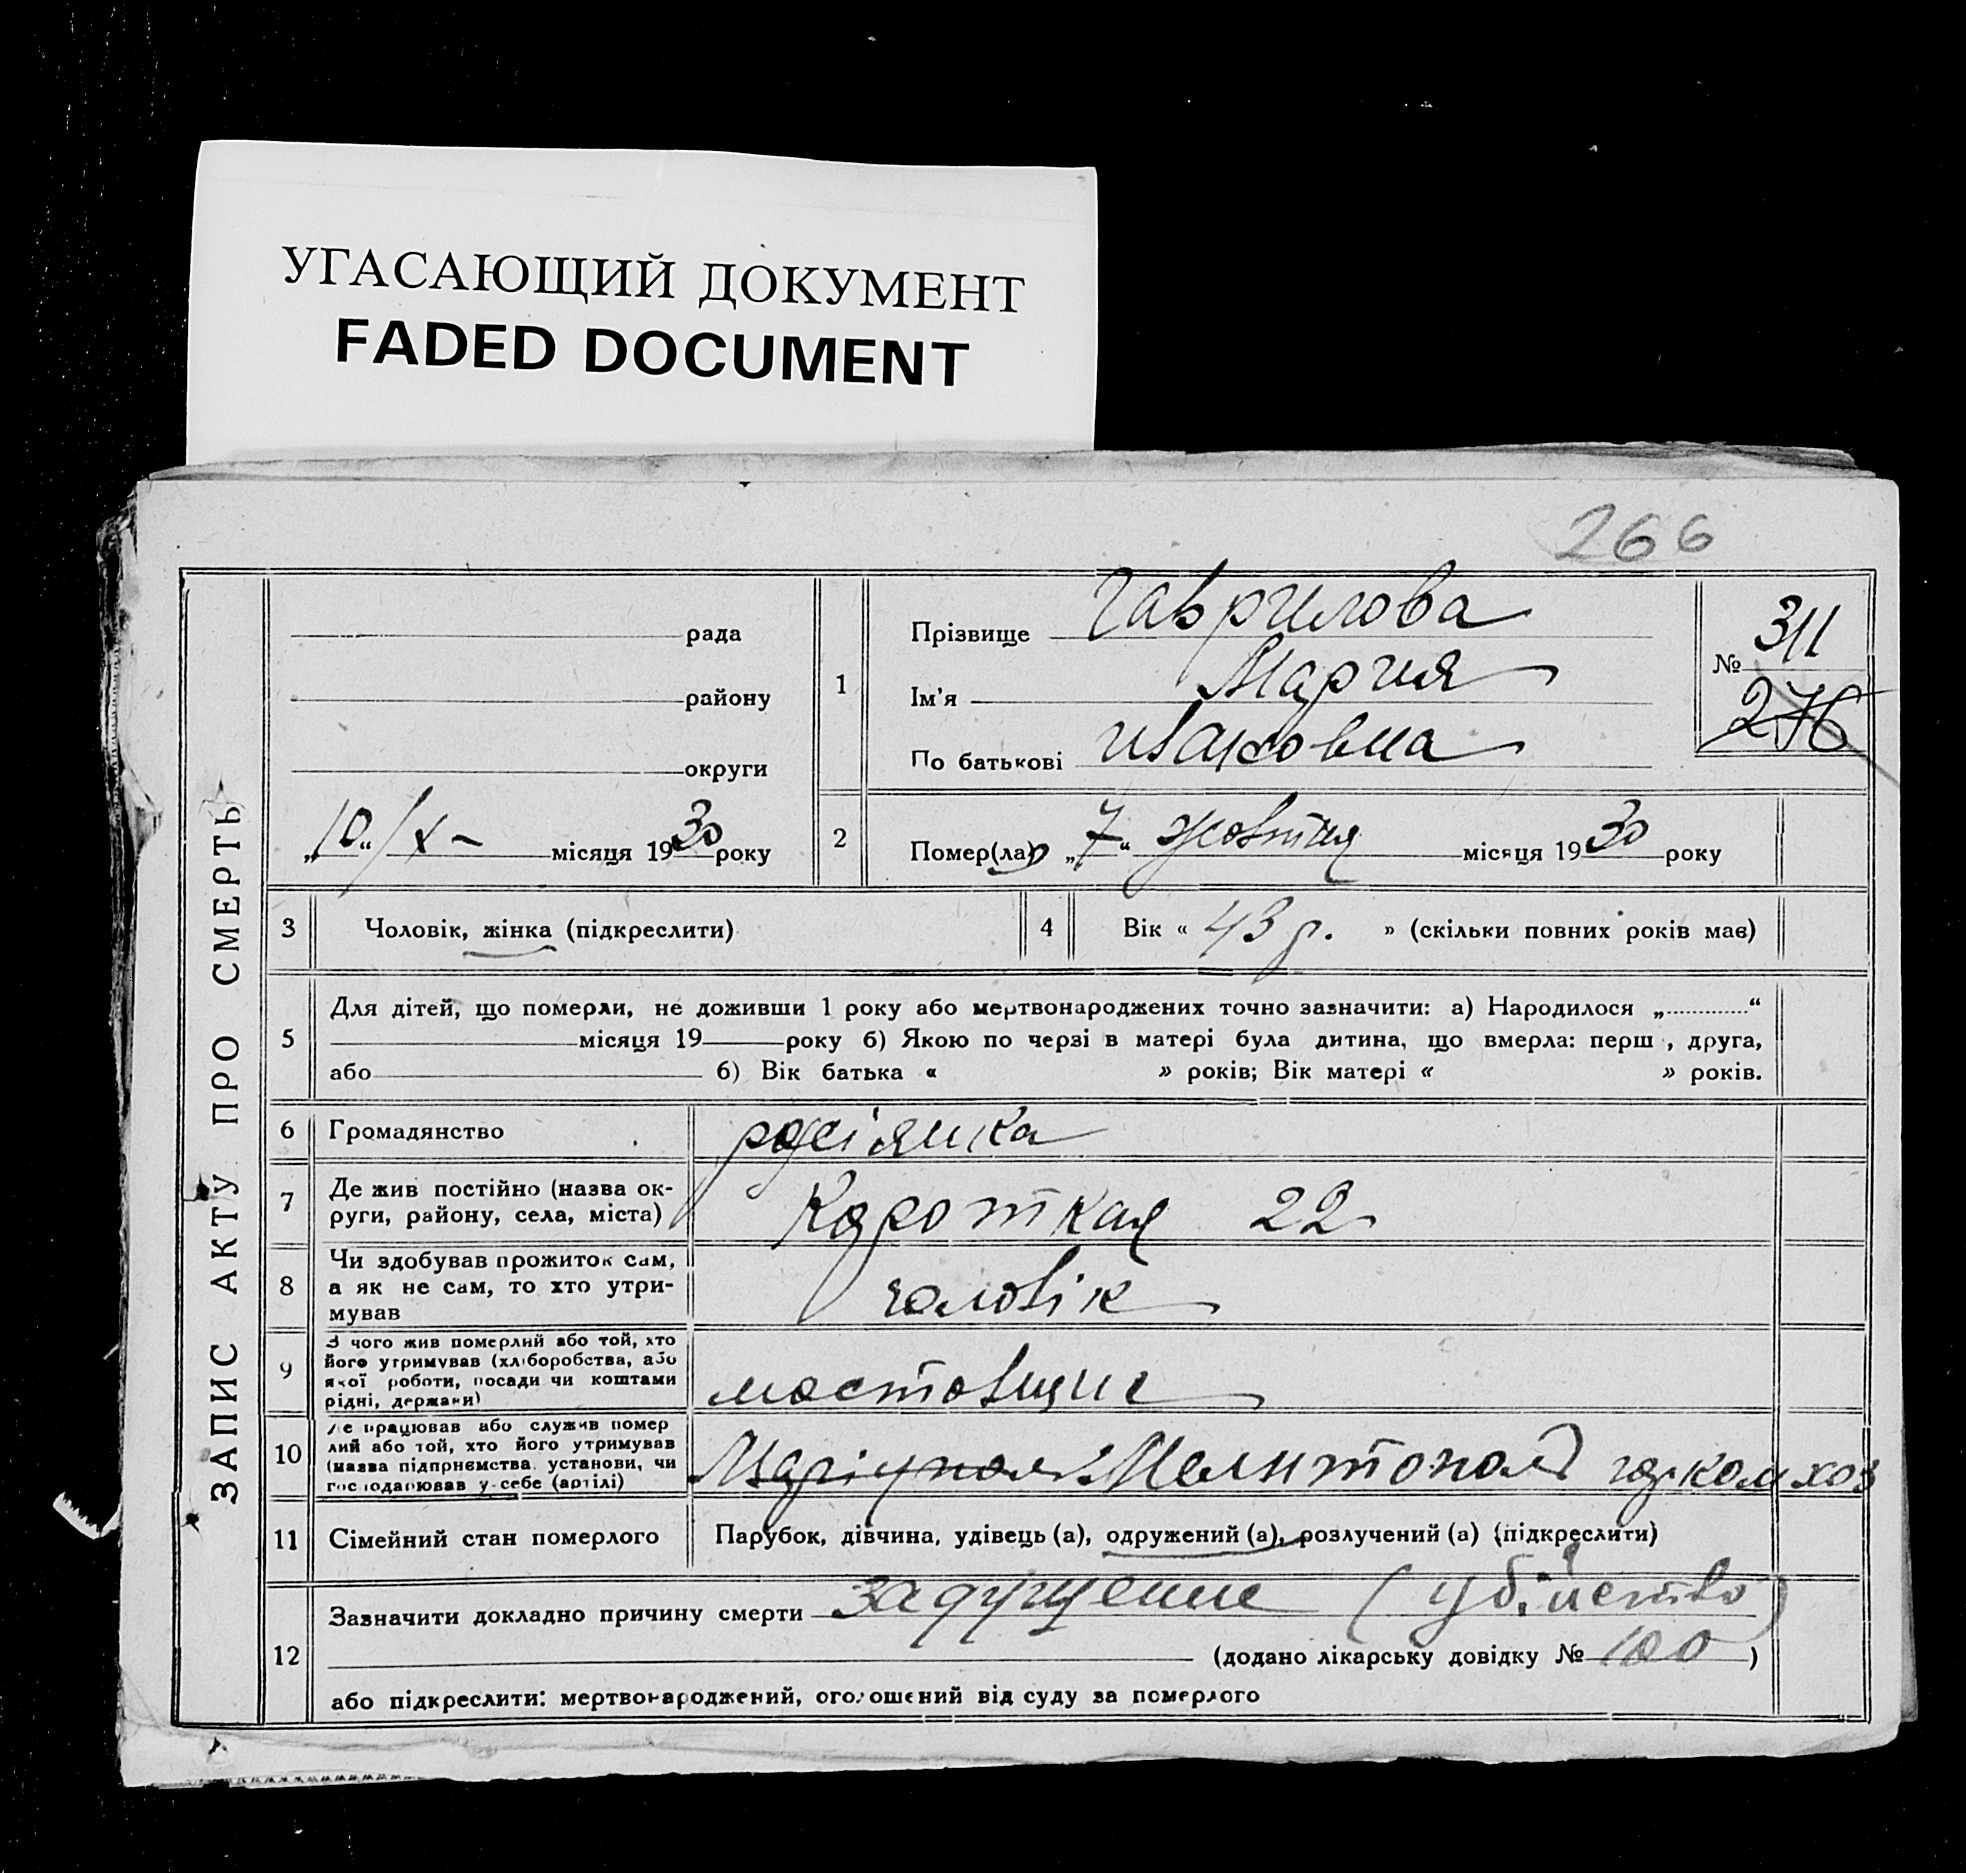 УГАСАЮЩИЙ ДОКУМЕНТ
FADED DOCUMENT
266
ЗАПИС АКТУ ПРО СМЕРТЬ
рада
району
округи
„10“ /X – місяця 1930 року
1
Прізвище Гаврилова
Ім'я Мария
По батькові
№ 311
276
2
Помер(ла) „7“ жовтня місяця 1930 року
3 Чоловік, жінка (підкреслити)
4 Вік « 43 р. » (скільки повних років має)
5
Для дітей, що померли, не доживши 1 року або мертвонароджених точно зазначити: а) Народилося „ “
місяця 19 року б) Якою по черзі в матері була дитина, що вмерла: перш , друга,
або б) Вік батька « » років; Вік матері « » років.
6 Громадянство росіянка
7
Де жив постійно (назва ок-
руги, району, села, міста)
Короткая 22
8
Чи здобував прожиток сам,
а як не сам, то хто утри-
мував
чоловік
9
З чого жив померлий або той, хто
його утримував (хліборобства, або
якої роботи, посади чи коштами
рідні, держави)
мостовщик
10
Де працював або служив помер
лий або той, хто його утримував
(назва підприємства, установи, чи
господарював у себе (артілі)
Маріуполь Мелитополь горкомхоз
11 Сімейний стан померлого
Парубок, дівчина, удівець (а), одружений (а), розлучений (а) (підкреслити)
12
Зазначити докладно причину смерти задушение (убийство)
(додано лікарську довідку № 100 )
або підкреслити: мертвонароджений, оголошений від суду за померлого